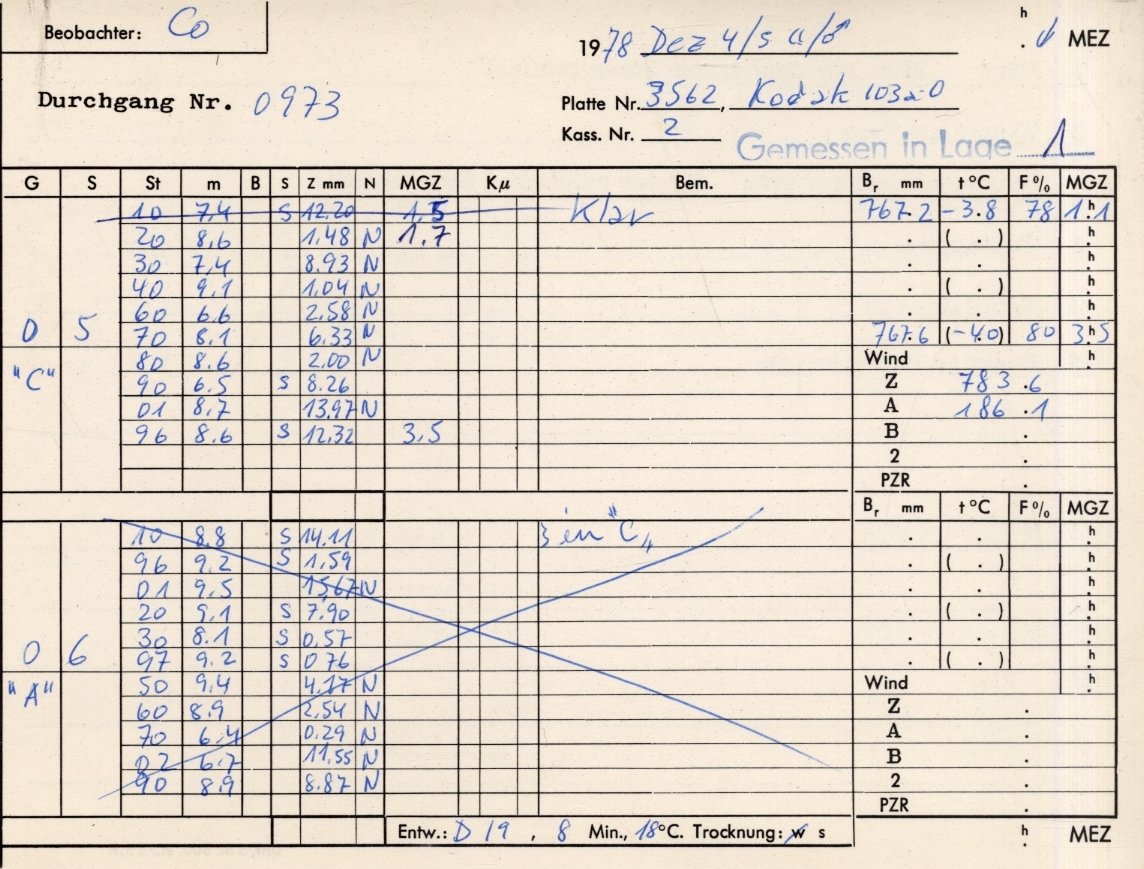 Beobachter: Co
1978 Dez 4/5 a/b h . MEZ
Durchgang Nr. 0973
Platte Nr. 3562, Kodak 103a-0
Kass. Nr. 2
Gemessen in Lage 1
G S St m B S Z mm N MGZ Kμ Bem. Br mm t °C F % MGZ
10 7,4 S 12.20 1,5 Klar 767.2 -3.8 78 1h.1
20 8,6 1.48 N 1.7 . ( . ) h.
30 7,4 8.93 N . . h.
40 9.1 1.04 N . ( . ) h.
60 6.6 2.58 N . . h.
0 5 70 8.1 6.33 N 767.6 (-4.0) 80 3h.5
80 8.6 2.00 N Wind h.
"C" 90 6.5 S 8.26 Z 783.6
01 8,7 13.97 N A 186.1
96 8.6 S 12.32 3.5 B .
2 .
PZR .
Br mm t °C F % MGZ
10 8.8 S 14.11 3 in "C" . . h.
96 9.2 S 1.59 . ( . ) h.
01 9.5 15,67 N . . h.
20 9.1 S 7.90 . ( . ) h.
30 8.1 S 0,57 . . h.
0 6 97 9.2 S 0 76 . ( . ) h.
"A" 50 9.4 4.17 N Wind h.
60 8.9 2.54 N Z .
70 6.4 0.29 N A .
02 6.7 11.55 N B .
90 8.9 8.87 N 2 .
PZR .
Entw.: D 19 , 8 Min., 18°C. Trocknung: w s h . MEZ